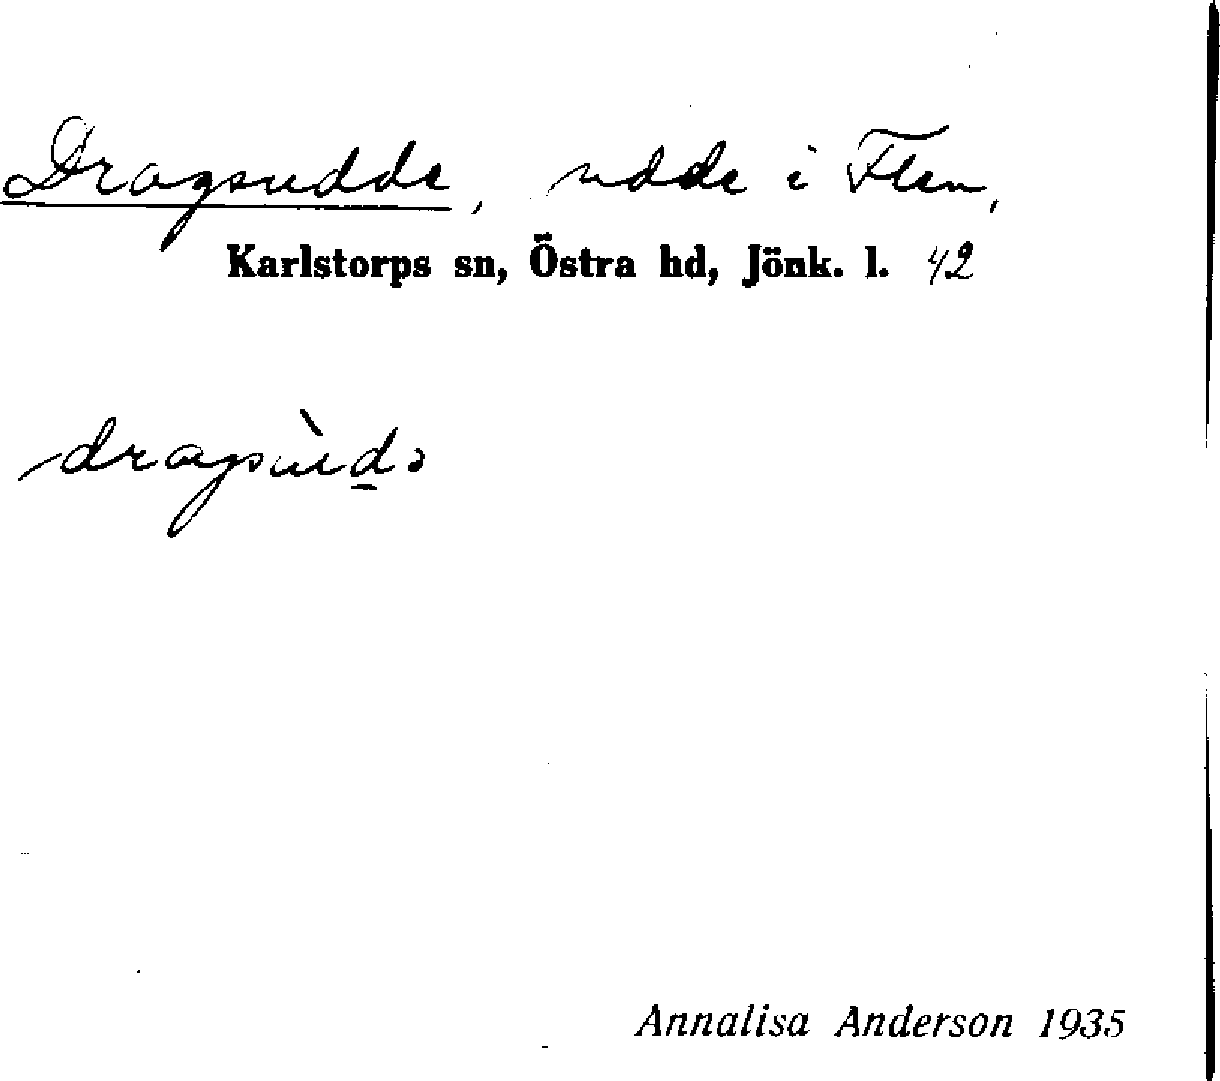 Dragsudde, udde i Flen,
Karlstorps sn, Östra hd, Jönk. l. 42
dragsùdə
Annalisa Anderson 1935